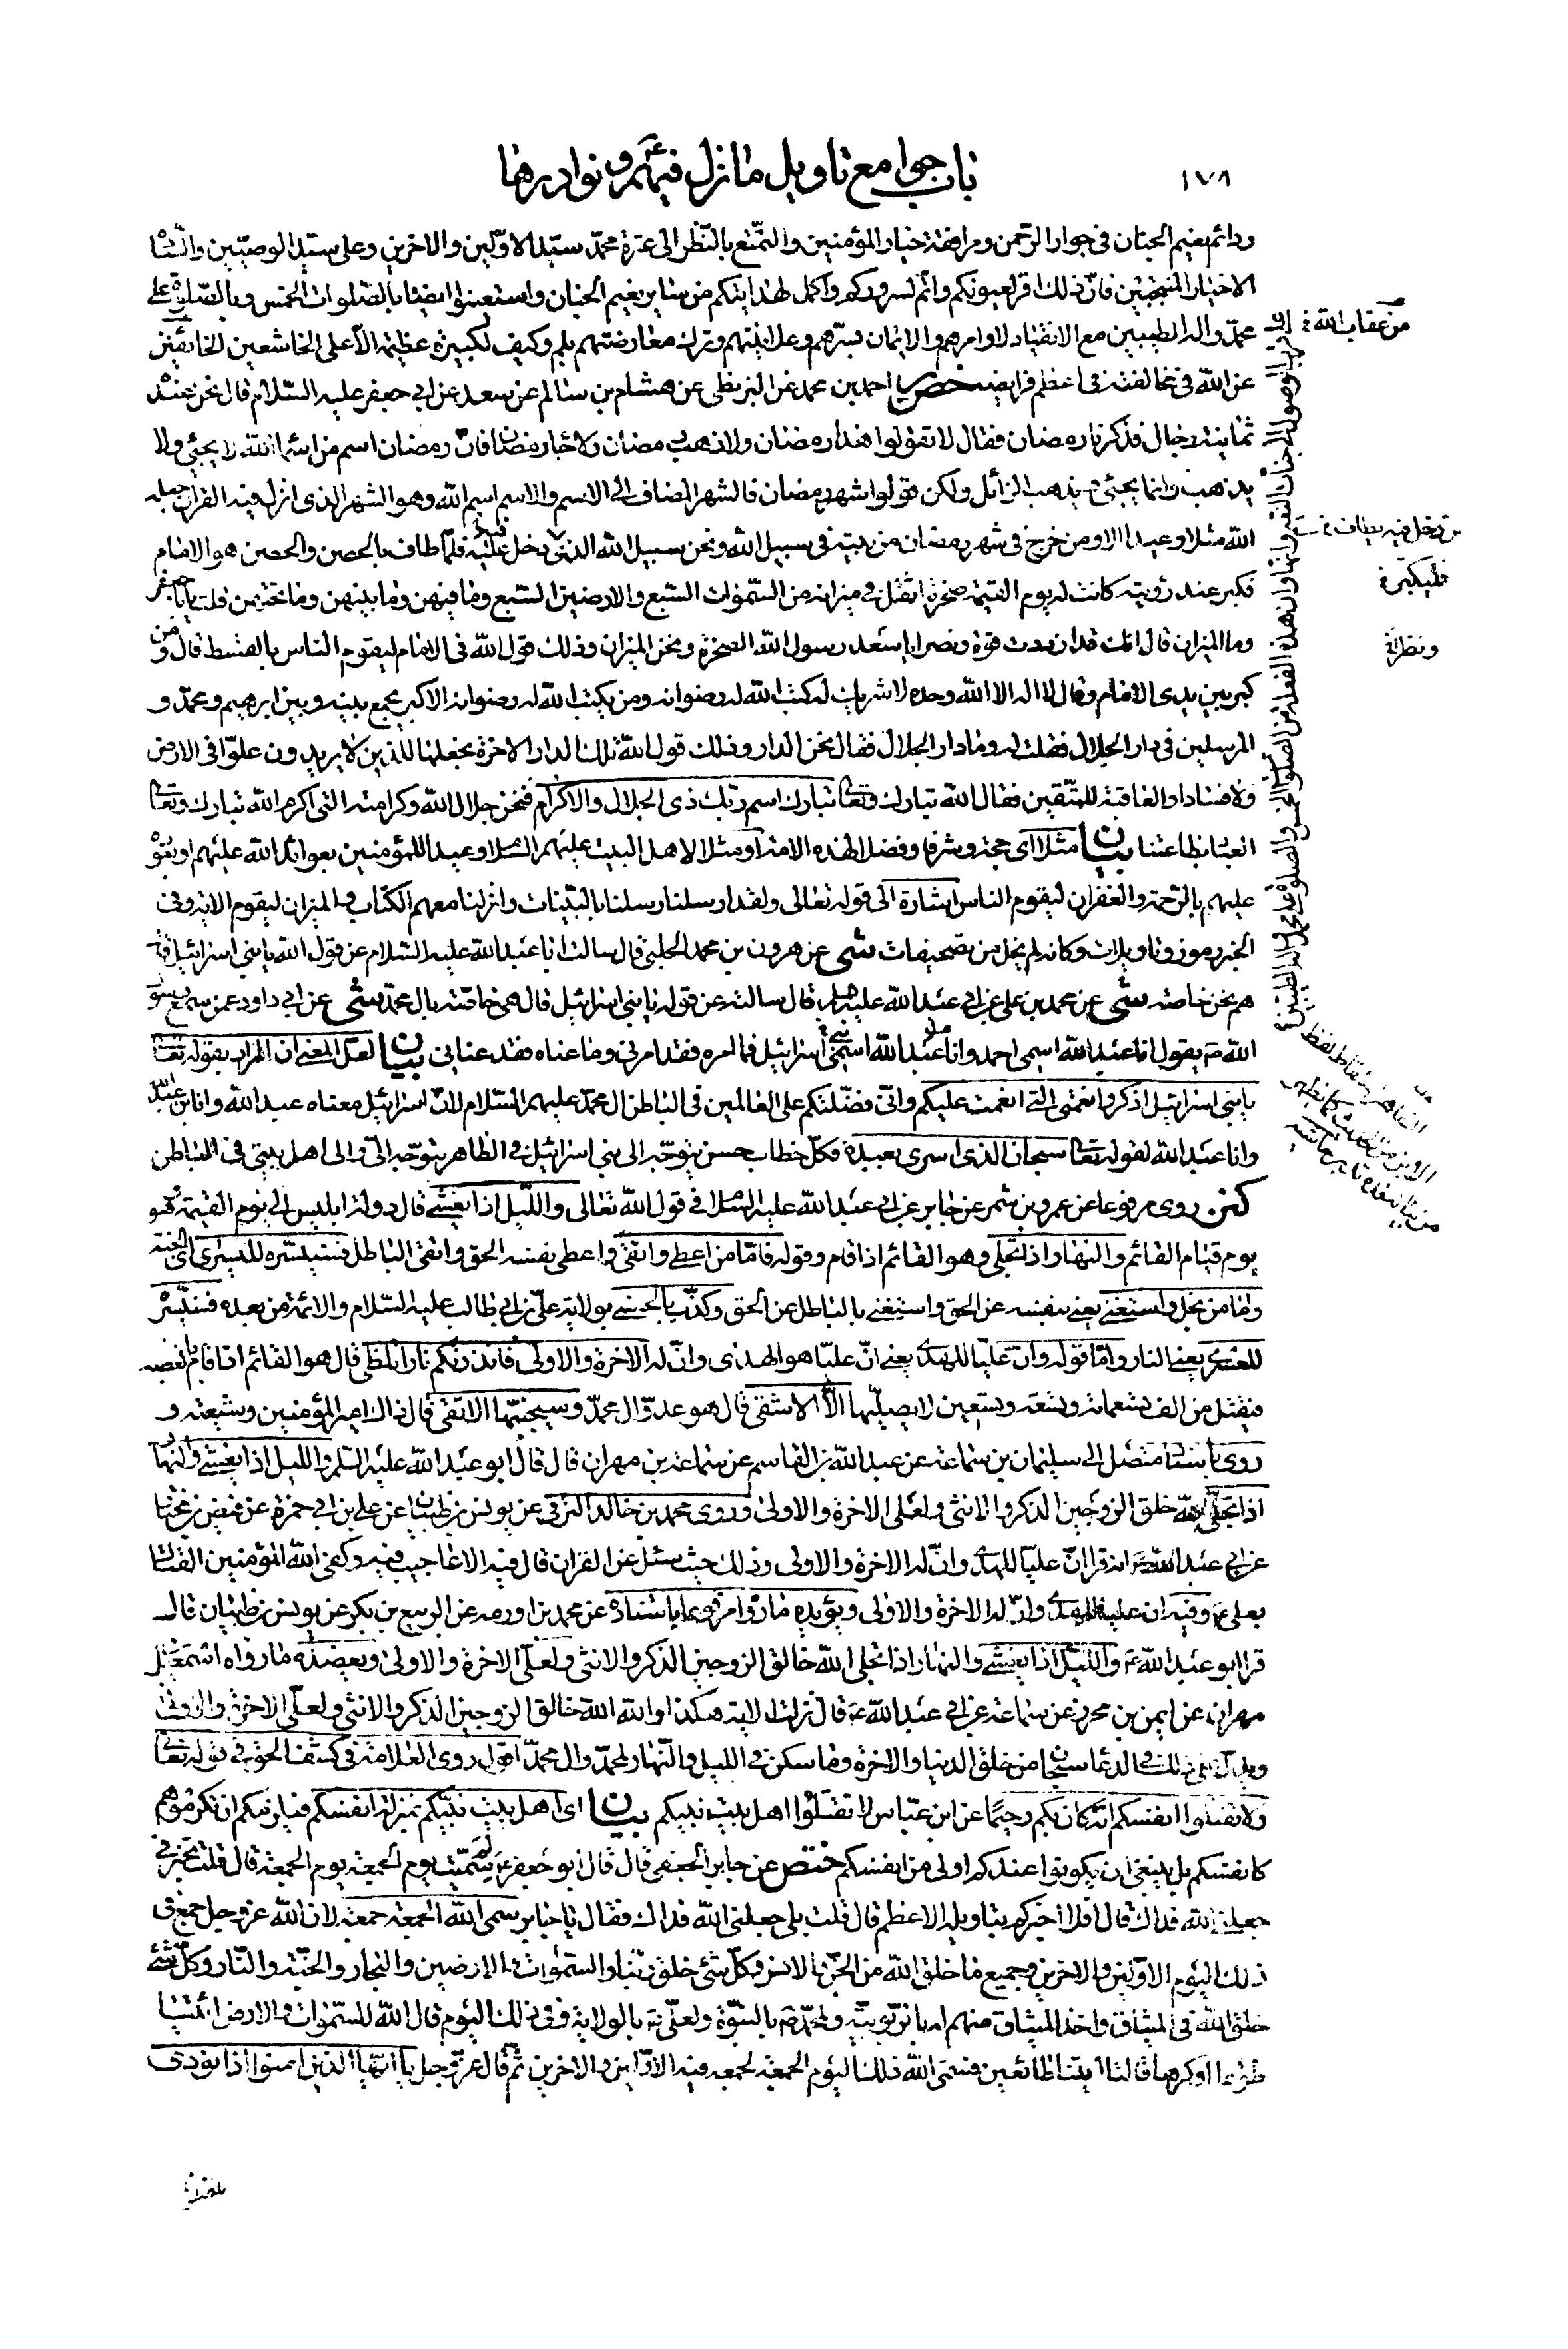 ١٧٨
باب جوامع تاويل ما نزل فيهم ع ونوادرها
ودائم نعيم الجنان في جوار الرحمن ومرافقة خيار المؤمنين والتمتع بالنظر الى عترة محمد سيد الاولين والاخرين وعلى سيد الوصيين والسادة
الاخيار المنتجبين فان ذلك اقر لعيونكم واتم لسروركم واكمل لهدايتكم من ساير نعيم الجنان واستعينوا ايضا بالصلوات الخمس وبالصلوة على
محمد واله الطيبين مع الانقياد لاوامرهم والايمان بسرهم وعلانيتهم وترك معارضتهم بلم وكيف لكبيرة عظيمة الا على الخاشعين الخائفين
عن الله في مخالفته في اعظم فرايضه خص ير احمد بن محمد عن البزنطى عن هشام بن سالم عن سعد عن ابي جعفر عليه السلام قال نحن عنده
ثمانية رجال فذكرنا رمضان فقال لا تقولوا هذا رمضان ولا ذهب رمضان ولا جاء رمضان فان رمضان اسم من اسماء الله لا يجئ ولا
يذهب وانما يجئ ويذهب الزائل ولكن قولوا شهر رمضان فالشهر المضاف الى الاسم والاسم اسم الله وهو الشهر الذي انزل فيه القران جعله
الله مثلا وعيدا الا ومن خرج في شهر رمضان من بيته في سبيل الله ونحن سبيل الله الذي دخل عليه فيه فلما طاف بالحصن والحصن هو الامام
فكبر عند رؤيته كانت له يوم القيمة صخرة اثقل في ميزانه من السموات السبع والارضين السبع وما فيهن وما بينهن وما تحتهن قلت يا ابا جعفر
وما الميزان قال انك قد ازددت قوة ونصرا يا سعد رسول الله الصخرة ونحن الميزان وذلك قول الله في الامام ليقوم الناس بالقسط قال ومن
كبر بين يدى الامام وقال لا اله الا الله وحده لا شريك له كتب الله له رضوانه ومن يكتب الله له رضوانه الاكبر يجمع بينه وبين ابرهيم ومحمد و
المرسلين في دار الجلال فقلت له وما دار الجلال فقال نحن الدار وذلك قول الله تلك الدار الاخرة نجعلها للذين لا يريدون علوا في الارض
ولا فسادا والعاقبة للمتقين فقال الله تبارك وتعالى تبارك اسم ربك ذى الجلال والاكرام فنحن جلال الله وكرامته التى اكرم الله تبارك وتعالى
العباد بطاعتنا بيان مثلا اى حجة وشرفا وفضلا لهذه الامة او مثلا لاهل البيت عليهم السلم وعيدا للمؤمنين بعوائد الله عليهم او يعود
عليهم بالرحمة والغفران ليقوم الناس اشارة الى قوله تعالى ولقد ارسلنا رسلنا بالبينات وانزلنا معهم الكتاب والميزان ليقوم الاية وفى
الخبر رموز وتاويلات وكانه لم يخل من تصحيفات شى عن هرون بن محمد الحلبى قال سالت ابا عبد الله عليه السلام عن قول الله يا بنى اسرائيل قال
هم نحن خاصة شى عن محمد بن على عن ابي عبد الله عليه السلم قال سالته عن قوله يا بنى اسرائيل قال هى خاصة بال محمد شى عن ابي داود عمن سمع رسول
الله ص يقول انا عبد الله اسمى احمد وانا عبد الله اسمى اسرائيل فما امره فقد امرنى وما عناه فقد عنانى بيان لعل المعنى ان المراد بقوله تعالى
يا بنى اسرائيل اذكروا نعمتى التى انعمت عليكم وانى فضلتكم على العالمين في الباطن ال محمد عليهم السلام لان اسرائيل معناه عبد الله وانا ابن عبد الله
وانا عبد الله لقوله تعالى سبحان الذى اسرى بعبده فكل خطاب حسن يتوجه الى بنى اسرائيل في الظاهر يتوجه الى والى اهل بيتى في الباطن
كنز روى مرفوعا عن عمرو بن شمر عن جابر عن ابي عبد الله عليه السلم في قول الله تعالى والليل اذا يغشى قال دولة ابليس الى يوم القيمة وهو
يوم قيام القائم والنهار اذا تجلى وهو القائم اذا قام وقوله فاما من اعطى واتقى واعطى نفسه الحق واتقى الباطل فسنيسره لليسرى اى الجنة
واما من بخل واستغنى يعنى بنفسه عن الحق واستغنى بالباطل عن الحق وكذب بالحسنى بولاية على بن ابي طالب عليه السلام والائمة من بعده فسنيسره
للعسرى يعنى النار واما قوله وان علينا للهدى يعنى ان عليا هو الهدى وان له الاخرة والاولى فانذرتكم نارا تلظى قال هو القائم اذا قام بالغضب
فيقتل من الف تسعمائة وتسعة وتسعين لا يصليها الا الاشقى قال هو عدو ال محمد وسيجنبها الاتقى قال ذاك امير المؤمنين وشيعته و
روى باسناد متصل الى سليمان بن سماعة عن عبد الله بن القاسم عن سماعة بن مهران قال قال ابو عبد الله عليه السلم والليل اذا يغشى والنهار
اذا تجلى الله خلق الزوجين الذكر والانثى ولعلى الاخرة والاولى وروى محمد بن خالد البرقى عن يونس بن ظبيان عن على بن ابي حمزة عن فيض بن مختار
عن ابي عبد الله ع انه قرا ان عليا للهدى وان له الاخرة والاولى وذلك حيث سئل عن القران قال فيه الاعاجيب فيه وكفى الله المؤمنين القتال
بعلى ع وفيه ان عليا للهدى وان له الاخرة والاولى ويؤيده ما رواه مرفوعا باسناده عن محمد بن اورمه عن الربيع بن بكر عن يونس بن ظبيان قال
قرا ابو عبد الله ع والليل اذا يغشى والنهار اذا تجلى الله خالق الزوجين الذكر والانثى ولعلى الاخرة والاولى ويعضده ما رواه اسمعيل بن
مهران عن ايمن بن محرز عن سماعة عن ابي عبد الله ع قال نزلت الاية هكذا والله الله خالق الزوجين الذكر والانثى ولعلى الاخرة والاولى
ويدل على ذلك في الدعا سبحان من خلق الدنيا والاخرة وما سكن في الليل والنهار لمحمد وال محمد اقول روى العلامة في كشف الحق في قوله تعالى
ولا تقتلوا انفسكم انه كان بكم رحيما عن ابن عباس لا تقتلوا اهل بيت نبيكم بيان اى اهل بيت نبيكم بمنزلة انفسكم فيلزمكم ان تكرموهم
كانفسكم بل ينبغى ان يكونوا عندكم اولى من انفسكم ختص عن جابر الجعفى قال قال ابو جعفر ع لم سميت يوم الجمعة يوم الجمعة قال قلت تخبرنى
جعلنى الله فداك قال افلا اخبركم بتاويله الاعظم قال قلت بلى جعلنى الله فداك فقال يا جابر سمى الله الجمعة جمعة لان الله عز وجل جمع في
ذلك اليوم الاولين والاخرين وجميع ما خلق الله من الجن والانس وكل شئ خلق ربنا والسموات والارضين والبحار والجنة والنار وكل شئ
خلق الله في الميثاق واخذ الميثاق منهم له بالربوبية ولمحمد ص بالنبوة ولعلى ع بالولاية وفى ذلك اليوم قال الله للسموات والارض ائتيا
طوعا او كرها قالتا اتينا طائعين فسمى الله ذلك اليوم الجمعة لجمعه فيه الاولين والاخرين ثم قال عز وجل يا ايها الذين امنوا اذا نودى
من عقاب الله
دخل فيه يطاف
فليكبر
ونظرا